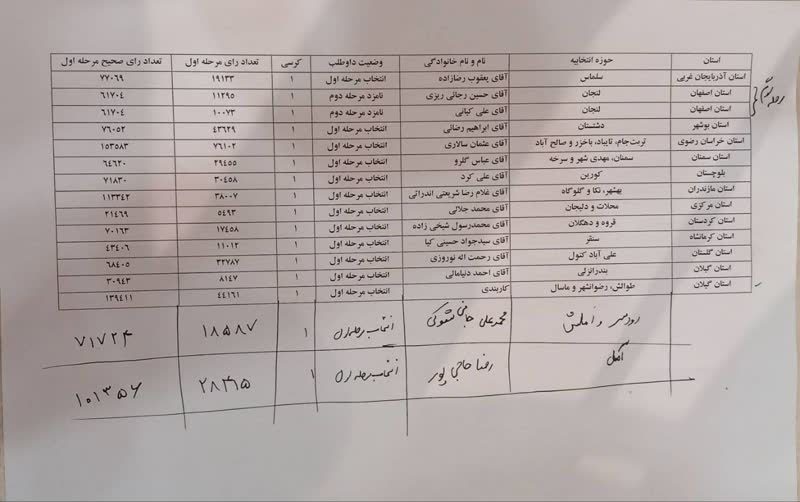 استان حوزه انتخابیه نام و نام خانوادگی وضعیت داوطلب کرسی تعداد رای مرحله اول تعداد رای صحیح مرحله اول
استان آذربایجان غربی سلماس آقای یعقوب رضازاده انتخاب مرحله اول ۱ ۱۹۱۳۳ ۷۷۰۶۹
استان اصفهان لنجان آقای حسین رجائی ریزی نامزد مرحله دوم ۱ ۱۱۲۹۵ ۶۱۷۰۴
استان اصفهان لنجان آقای علی کیانی نامزد مرحله دوم ۱ ۱۰۰۷۳ ۶۱۷۰۴
استان بوشهر دشتستان آقای ابراهیم رضائی انتخاب مرحله اول ۱ ۴۳۶۲۹ ۷۶۰۵۲
استان خراسان رضوی تربت‌جام، تایباد، باخزر و صالح آباد آقای عثمان سالاری انتخاب مرحله اول ۱ ۷۶۱۰۲ ۱۵۳۵۸۳
استان سمنان سمنان، مهدی شهر و سرخه آقای عباس گلرو انتخاب مرحله اول ۱ ۲۹۴۵۵ ۶۴۶۲۰
بلوچستان کورین آقای علی کرد انتخاب مرحله اول ۱ ۳۰۴۵۸ ۷۱۸۳۰
استان مازندران بهشهر، نکا و گلوگاه آقای غلام رضا شریعتی اندراتی انتخاب مرحله اول ۱ ۳۸۰۰۷ ۱۱۳۳۴۲
استان مرکزی محلات و دلیجان آقای محمد جلالی انتخاب مرحله اول ۱ ۵۴۹۳ ۲۱۴۶۹
استان کردستان قروه و دهگلان آقای محمدرسول شیخی زاده انتخاب مرحله اول ۱ ۱۷۴۵۸ ۷۰۱۶۳
استان کرمانشاه سنقر آقای سیدجواد حسینی کیا انتخاب مرحله اول ۱ ۱۱۰۱۲ ۴۳۴۰۶
استان گلستان علی آباد کتول آقای رحمت اله نوروزی انتخاب مرحله اول ۱ ۳۲۷۸۷ ۶۸۴۰۵
استان گیلان بندرانزلی آقای احمد دنیامالی انتخاب مرحله اول ۱ ۸۱۴۷ ۳۰۹۴۳
استان گیلان طوالش، رضوانشهر و ماسال کاربندی انتخاب مرحله اول ۱ ۴۴۱۶۱ ۱۳۹۴۱۱
رودسر و املش محمدعلی انتخاب مرحله اول ۱ ۱۸۵۸۷ ۷۱۷۲۴
آمل رضا حاجی پور انتخاب مرحله اول ۱ ۱۰۱۳۵۶